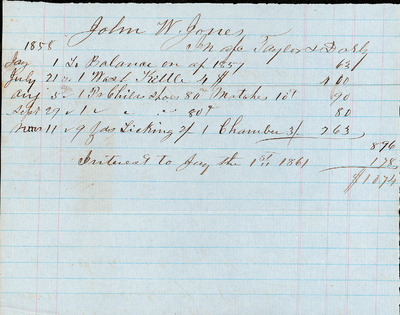 John W Jones
1858 In a/c Taylor &
Jay 1 To Balance on a/c 1857 63
July 21 " 1 Wash Kettle 4 $ 4 00
Aug 5 " 1 Pr Childs Shoes 80 Matches 10 90
Sept 29 " 1 " " " 80 80
11 " 9 yds Ticking 2/ 1 Chamber 3/ 2 63
8 96
Interest to Jay the 1st 1861 1 78
$10 74